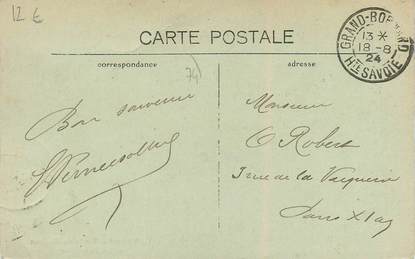 12 €
CARTE POSTALE
GRAND-BORNAND
13 *
18-8
24
Hte SAVOIE
correspondance
adresse
74
Bon souvenir
Monsieur
O Robert
rue de la
Paris